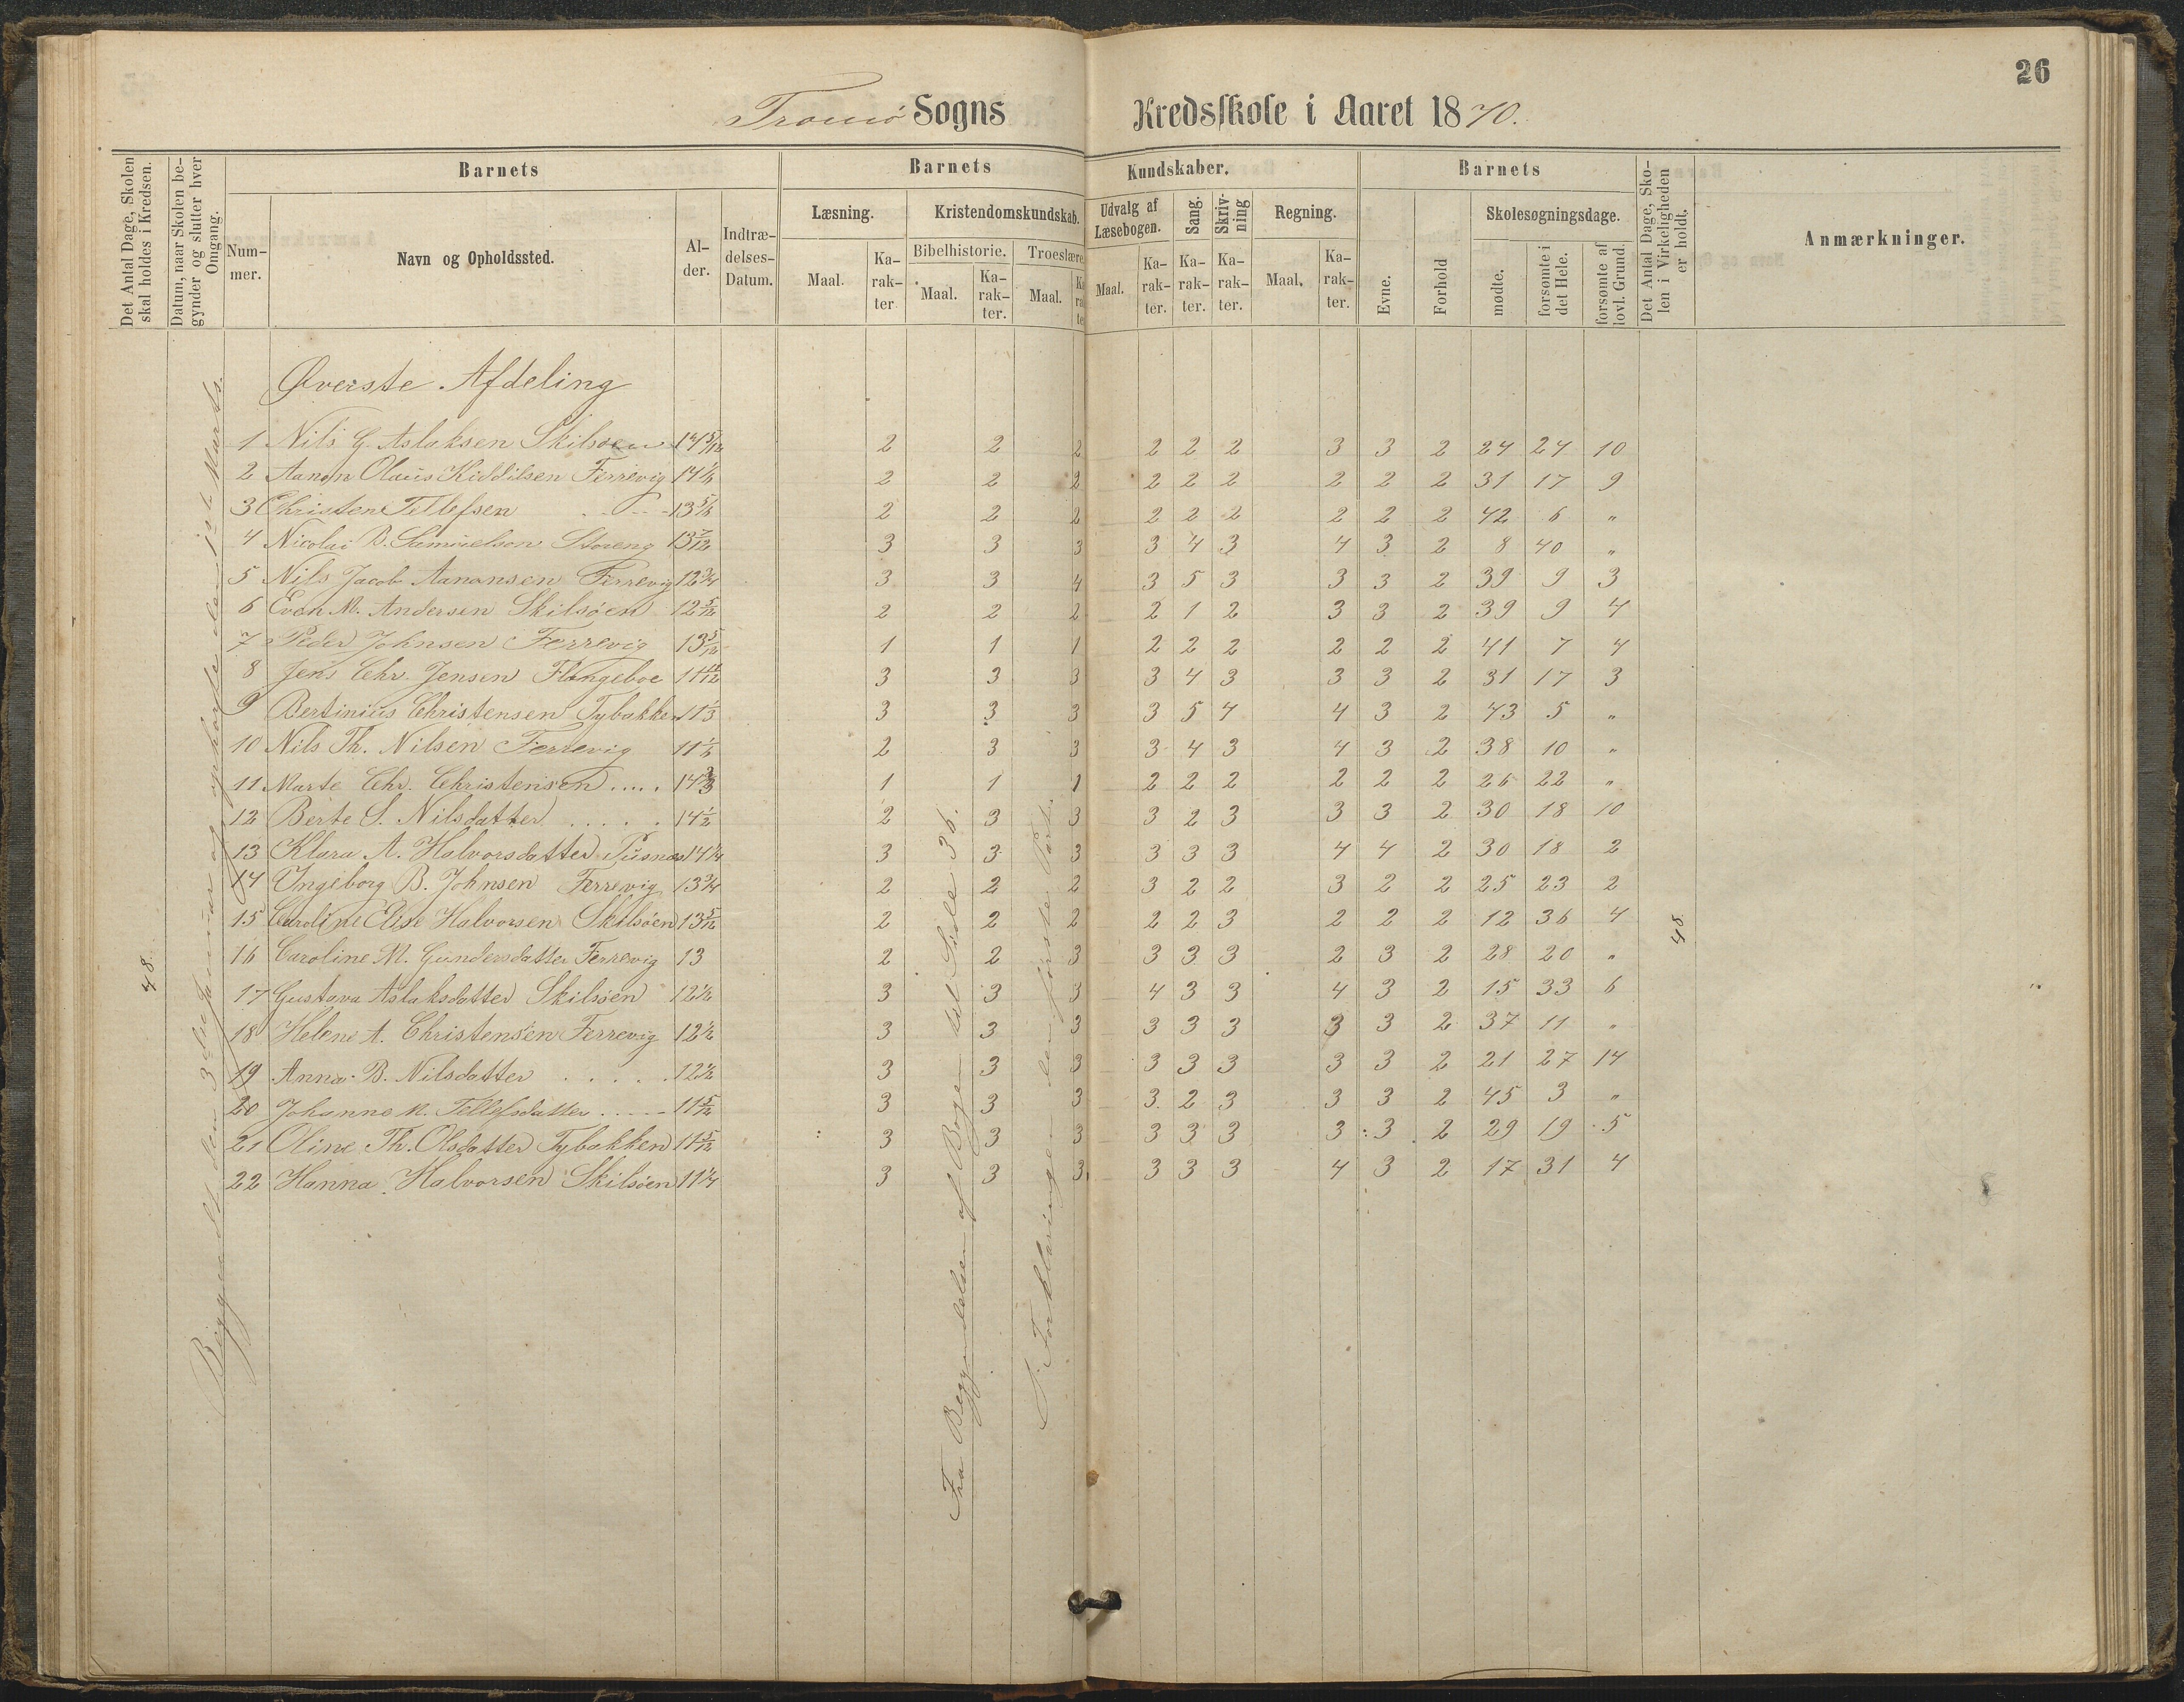 26
Tromø Sogns Kredsskole i Aaret 1870.
Det Antal Dage, Skolen skal holdes i Kredsen.
Datum, naar Skolen begynder og slutter hver Omgang.
Barnets Barnets Kundskaber. Barnets
Nummer. Navn og Opholdssted. Alder. Indtrædelses-Datum.
Læsning. Kristendomskundskab. Udvalg af Læsebogen. Sang. Skrivning Regning. Skolesøgningsdage.
Bibelhistorie. Troeslære.
Maal. Karakter. Maal. Karakter. Maal. Karakter Maal. Karakter. Karakter. Karakter. Maal. Karakter. Evne. Forhold mødte. forsømte i det Hele. forsømte af lovl. Grund.
Det Antal Dage, Skolen i Virkeligheden er holdt.
Anmærkninger.
Øverste Afdeling
1 Nils G. Aslaksen Skilsøen 14 5/12 2 2 2 2 2 2 3 3 2 24 24 10
2 Aanon Olaus Kiddilsen Færrevig 14 1/6 2 2 2 2 2 2 2 2 2 31 17 9
3 Christen Tellefsen - - - 13 5/6 2 2 2 2 2 2 2 2 2 42 6 "
4 Nicolai B. Samuelson Stoveng 13 7/12 3 3 3 3 4 3 4 3 2 8 40 "
5 Nils Jacob Aanansen Færrevig 12 3/4 3 3 4 3 5 3 3 3 2 39 9 3
6 Even M. Andersen Skilsøen 12 5/12 2 2 2 2 1 2 3 3 2 39 9 4
7 Peder Johnsen Færrevig 13 5/12 1 1 1 2 2 2 2 2 2 41 7 4
8 Jens Chr. Jensen Flangeboe 11 11/12 3 3 3 3 4 3 3 3 2 31 17 3
9 Bertinius Christensen Tybakken 11 1/3 3 3 3 3 5 4 4 3 2 43 5 "
10 Nils Th. Nilsen Færrevig 11 1/6 2 3 3 3 4 3 4 3 2 38 10 "
11 Marte Chr. Christensen .... 14 2/3 1 1 1 2 2 2 2 2 2 26 22 "
12 Berte S. Nilsdatter . . . . . 14 1/2 2 3 3 3 2 3 3 3 2 30 18 10
13 Klara A. Halvorsdatter Pusnæs 14 1/4 3 3 3 3 3 3 4 4 2 30 18 2
14 Ingeborg B. Johnsen Færrevig 13 3/4 2 2 2 3 2 2 3 2 2 25 23 2
15 Caroline Elise Halvorsen Skilsøen 13 5/12 2 2 2 2 2 3 2 2 2 12 36 4
16 Caroline M. Gundersdatter Færrevig 13 2 2 3 3 3 3 2 3 2 28 20 "
17 Gustava Aslaksdatter Skilsøen 12 1/2 3 3 3 4 3 3 4 3 2 15 33 6
18 Helene A. Christensen Færrevig 12 1/2 3 3 3 3 3 3 3 3 2 37 11 "
19 Anna B. Nilsdatter . . . . . 12 1/2 3 3 3 3 3 3 3 3 2 21 27 14
20 Johanne M. Tellefsdatter ..... 11 5/12 3 3 3 3 2 3 3 3 2 45 3 "
21 Oline Th. Olsdatter Tybakken 11 5/12 3 3 3 3 3 3 3 3 2 29 19 5
22 Hanna Halvorsen Skilsøen 11 1/4 3 3 3 3 3 3 4 3 2 17 31 4
48.
Begyndt den 3die Januar og ophørte den 1ste Marts.
Fra Begyndelsen af Bogen til Side 36.
I Forklaringen den første Part.
48